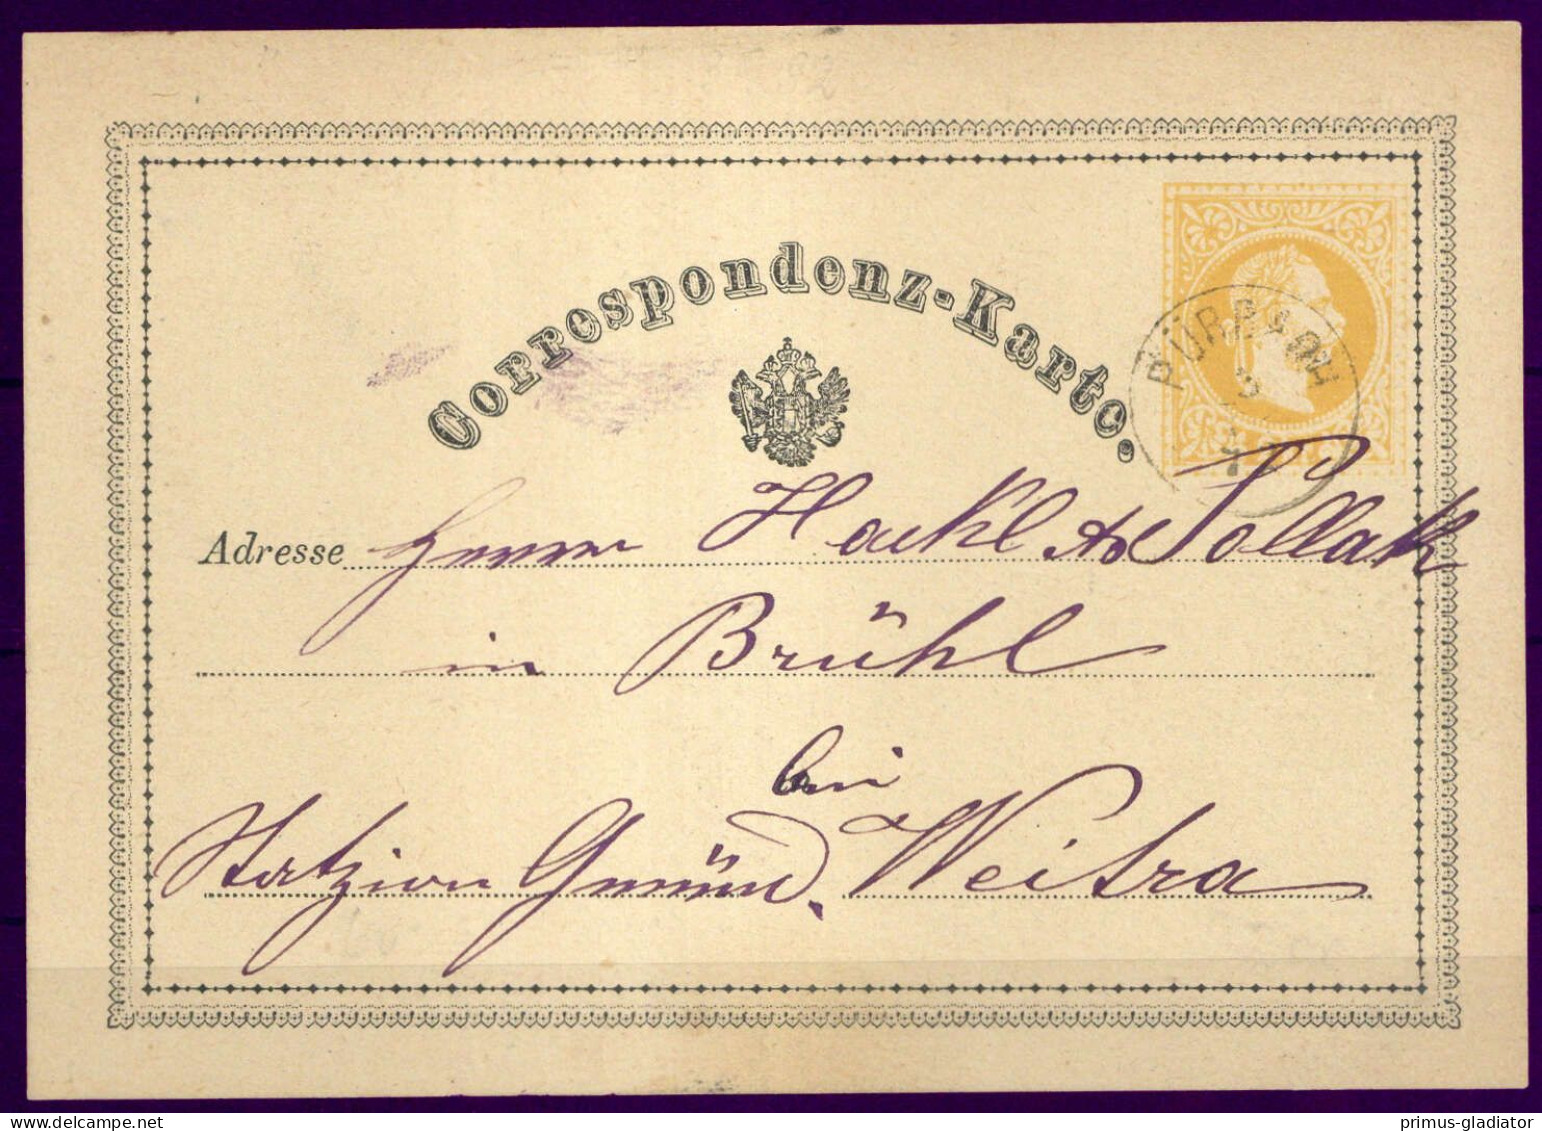 Correspondenz-Karte.
PÜRBACH
Adresse Herrn Hackl & Pollak
in Brühl
bei
Statzion Gmünd, Weitra
primus-gladiator